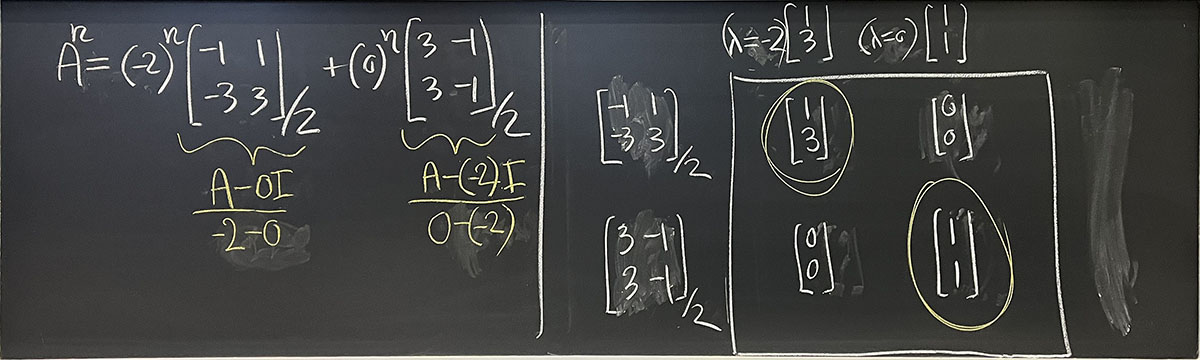 Aⁿ = (-2)ⁿ [-1 1; -3 3]/2 + (0)ⁿ [3 -1; 3 -1]/2
A-0I / -2-0
A-(-2)I / 0-(-2)
(λ=-2) [1; 3] (λ=0) [1; 1]
[-1 1; -3 3]/2 [1; 3] [0; 0]
[3 -1; 3 -1]/2 [0; 0] [1; 1]